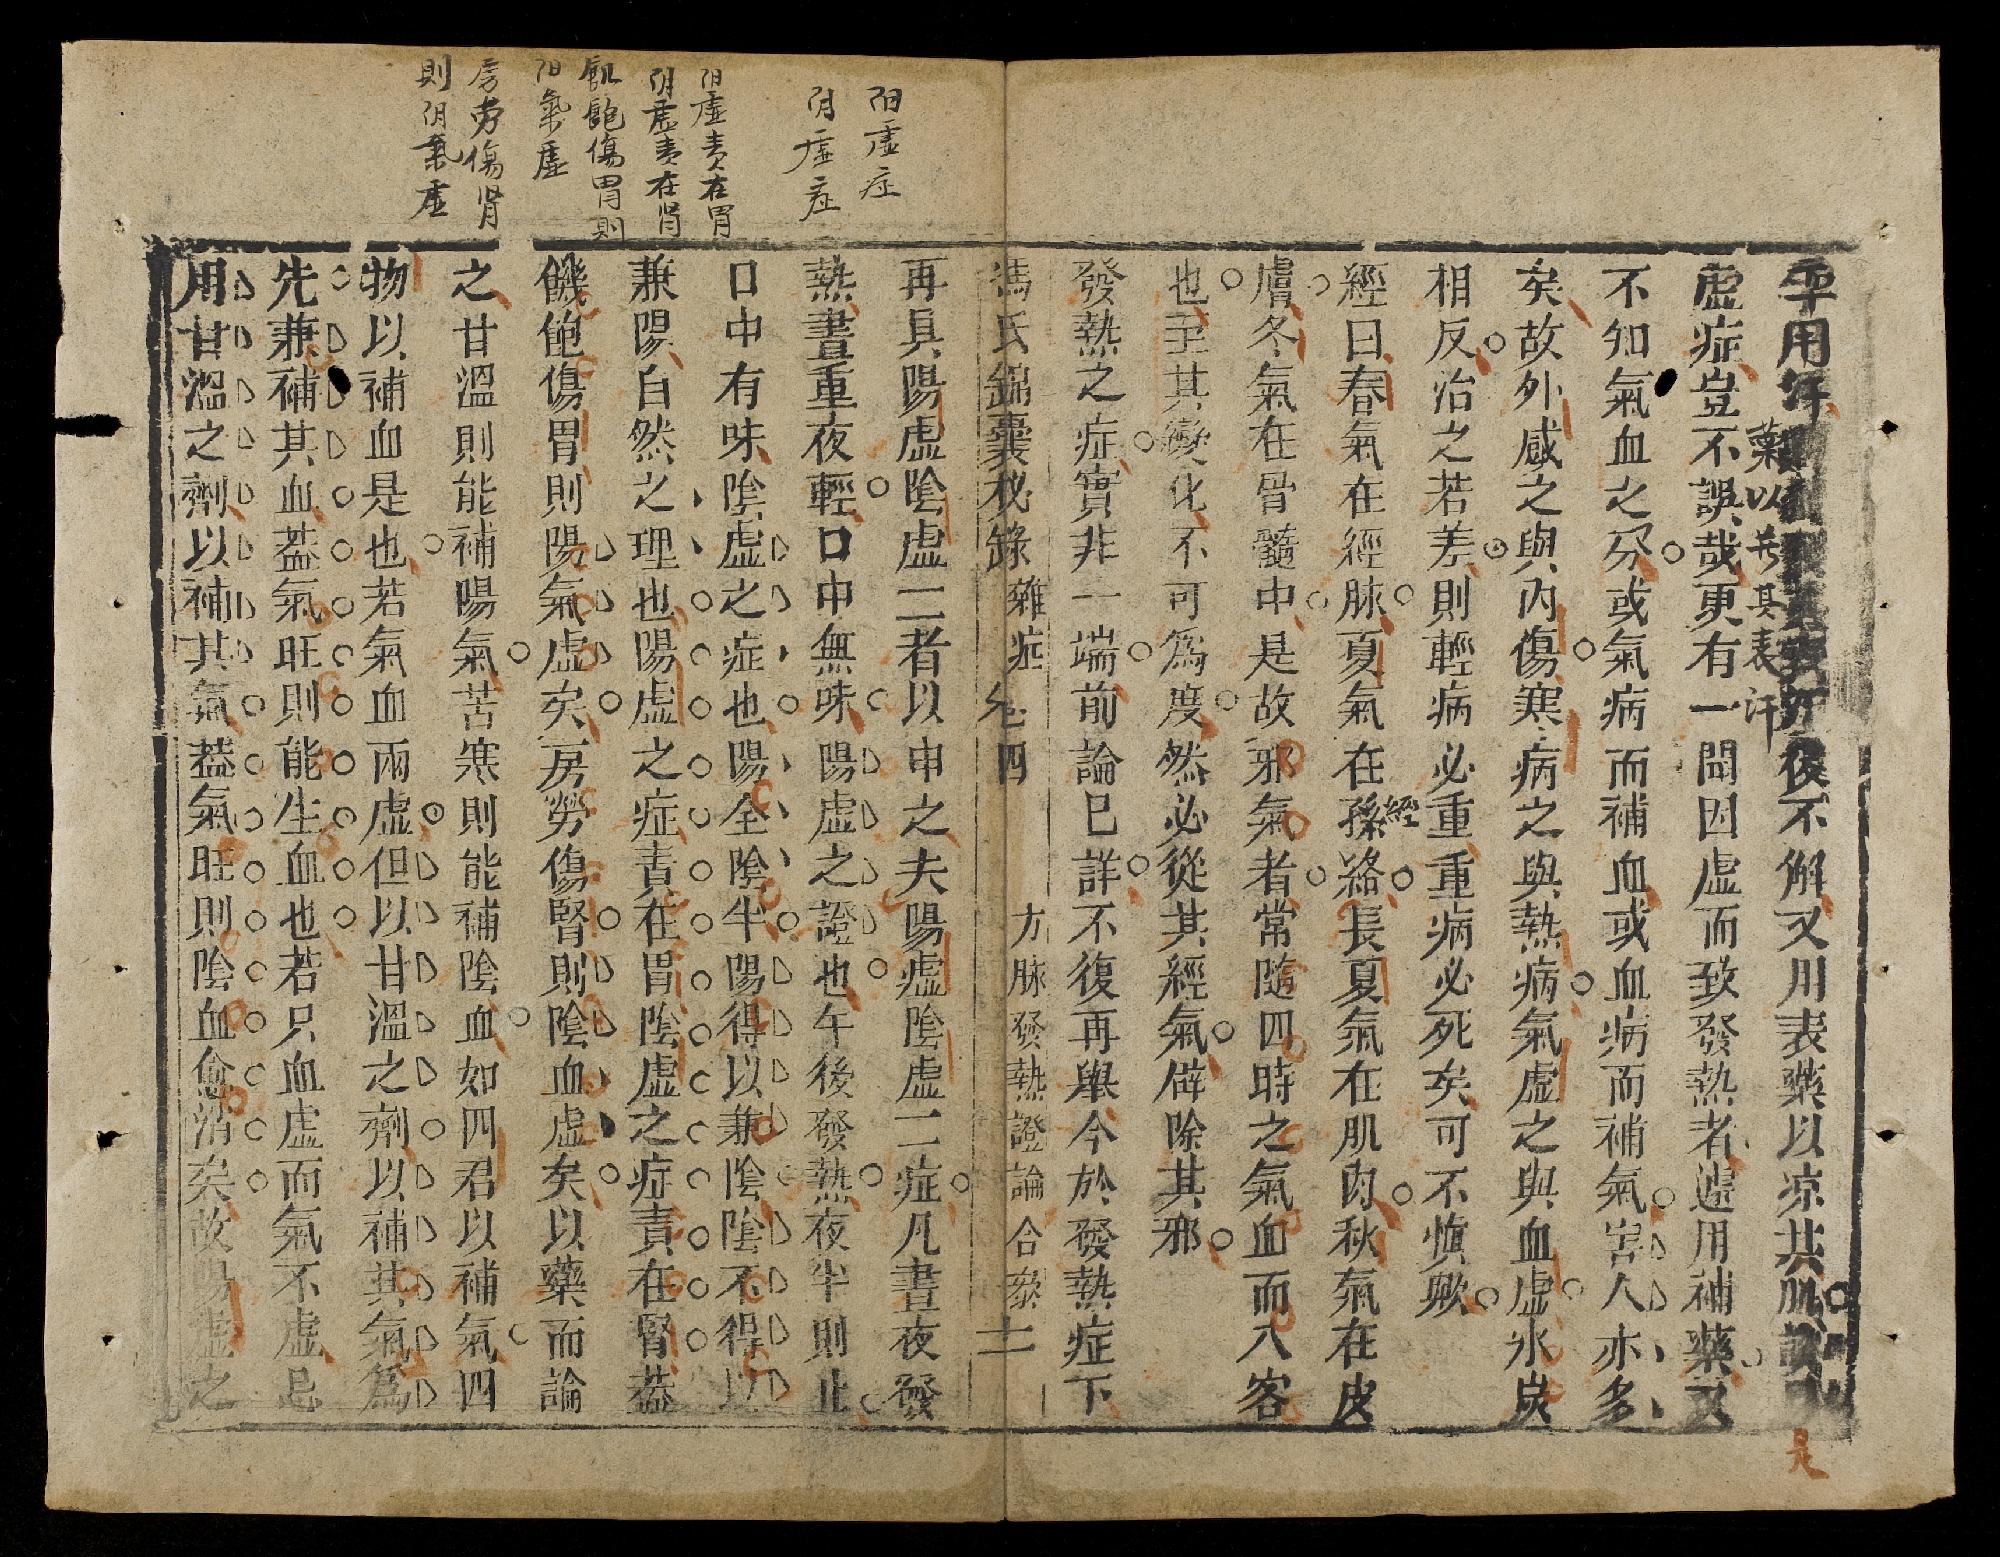 平用汗藥以發其表汗後不解又用表藥以凉其肌
是
虛症豈不誤哉更有一間因虛而致發熱者遽用補藥又
不知氣血之分或氣病而補血或血病而補氣害人亦多
矣故外感之與內傷寒病之與熱病氣虛之與血虛氷炭
相反治之若差則輕病必重重病必死矣可不慎歟
經曰春氣在經脉夏氣在孫絡長夏氣在肌肉秋氣在皮
經
膚冬氣在骨髓中是故邪氣者常隨四時之氣血而入客
也至其變化不可為度然必從其經氣僻除其邪
發熱之症實非一端前論已詳不復再舉今於發熱症下
馮氏錦囊秘錄 雜症 卷四 方脉發熱證論合叅 十一
再具陽虛陰虛二者以申之夫陽虛陰虛二症凡晝夜發
熱晝重夜輕口中無味陽虛之證也午後發熱夜半則止
口中有味陰虛之症也陽全陰半陽得以兼陰陰不得以
兼陽自然之理也陽虛之症責在胃陰虛之症責在腎葢
饑飽傷胃則陽氣虛矣房勞傷腎則陰血虛矣以藥而論
之甘溫則能補陽氣苦寒則能補陰血如四君以補氣四
物以補血是也若氣血兩虛但以甘溫之劑以補其氣為
先兼補其血葢氣旺則能生血也若只血虛而氣不虛忌
用甘溫之劑以補其氣葢氣旺則陰血愈消矣故陽虛之
阳虛症
阴虛症
阳虛責在胃
阴虛責在肾
飢飽傷胃則
阳氣虛
房劳傷肾
則阴氣虛